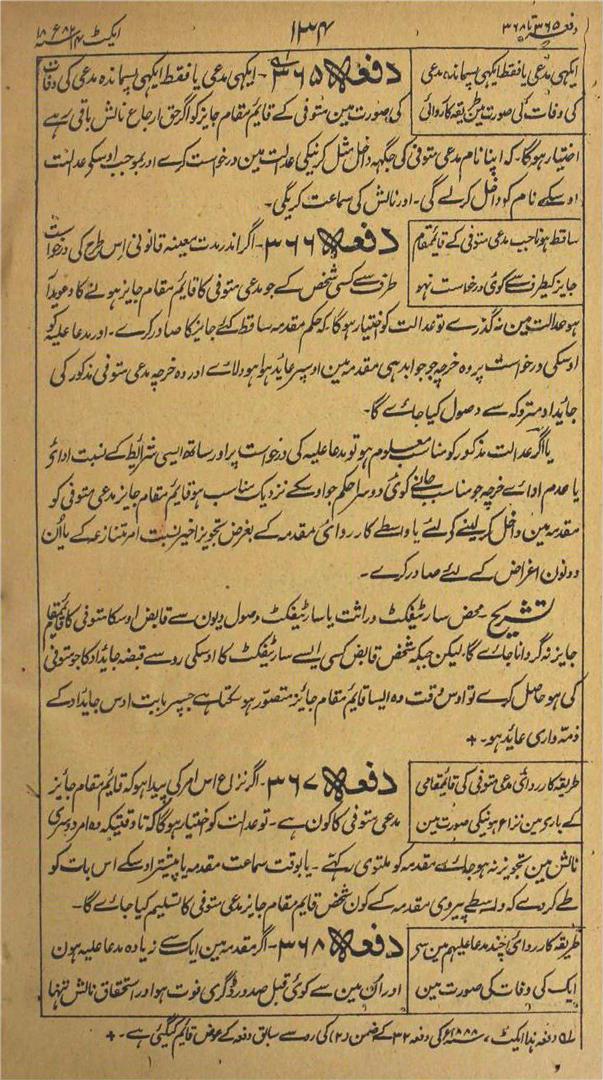 دفعہ ۳۶۵ تا ۳۶۸
۱۳۴
ایکٹ ۱۴ سنہ ۱۸۸۲ء
ایکہی مدعی یا فقط ایکہی پسماندہ مدعی
کی وفات کی صورت مین طریقہ کارروائی
دفعہ ۳۶۵ - ایکہی مدعی یا فقط ایکہی پسماندہ مدعی کی وفات
کی صورت مین متوفی کے قایم مقام جایز کو اگر حق ارجاع نالش باقی رہے
اختیار ہوگا۔ کہ اپنا نام مدعی متوفی کی جگہہ داخل مثل کرنیکی عدالت مین درخواست کرے اور بموجب اوسکے عدالت
اوسکے نام کو داخل کرلے گی۔ اور نالش کی سماعت کریگی۔
ساقط ہونا جب مدعی متوفی کے قایمقام
جایز کیطرف سے کوئی درخواست نہو
دفعہ ۳۶۶ - اگر اندر مدت معینہ قانونی اس طرح کی درخواست
طرف سے کسی شخص کے جو مدعی متوفی کا قایم مقام جایز ہونے کا دعویدار
ہو عدالت مین نہ گذرے تو عدالت کو اختیار ہوگا کہ حکم مقدمہ ساقط کئے جانیکا صادر کرے۔ اور مدعا علیہ کو
اوسکی درخواست پر وہ خرچہ جو جوابدہی مقدمہ مین اوسپر عاید ہوا ہو دلائے اور وہ خرچہ مدعی متوفی مذکور کی
جایداد متروکہ سے وصول کیا جائے گا۔
یا اگر عدالت مذکور کو مناسب معلوم ہو تو مدعا علیہ کی درخواست پر اور ساتھ ایسی شرائط کے نسبت ادائے
یا عدم ادائے خرچہ جو مناسب جانے کوئی دوسرا حکم جو اوسکے نزدیک مناسب ہو قایم مقام جایز مدعی متوفی کو
مقدمہ مین داخل کر لینے کی لئے یا واسطے کارروائی مقدمہ کے بغرض تجویز اخیر نسبت امر متنازعہ کے یا اُن
دونون اغراض کے لئے صادر کرے۔
تشریح - محض سارٹیفکٹ وراثت یا سارٹیفکٹ وصول دیون سے قابض اوسکا متوفی کا قایمقام
جایز نہ گردانا جائے گا۔ لیکن جبکہ شخص قابض کسی ایسے سارٹیفکٹ کا اوسکی رو سے قبضہ جایداد کا جو متوفی
کی ہو حاصل کرے تو اوس وقت وہ ایسا قایم مقام جایز متصور ہو سکتا ہے جسپر بابت اوس جایداد کے
ذمہ داری عاید ہو۔ +
طریقہ کارروائی مدعی متوفی کی قایمقامی
کے بارہ مین نزاع ہونیکی صورت مین
دفعہ ۳۶۷ - اگر نزاع اس امر کی پیدا ہو کہ قایم مقام جایز
مدعی متوفی کا کون ہے۔ تو عدالت کو اختیار ہوگا کہ تا وقتیکہ وہ امر دوسری
نالش مین تجویز نہ ہو جائے مقدمہ کو ملتوی رکھے۔ یا بوقت سماعت مقدمہ یا پیشتر اوسکے اس بات کو
طے کردے کہ واسطے پیروی مقدمہ کے کون شخص قایم مقام جایز مدعی متوفی کا تسلیم کیا جائے گا۔
طریقہ کارروائی چند مدعا علیہم مین سے
ایک کی وفات کی صورت مین
دفعہ ۳۶۸ - اگر مقدمہ مین ایک سے زیادہ مدعا علیہ ہون
اور اُن مین سے کوئی قبل صدور ڈگری فوت ہو اور استحقاق نالش تنہا
دفعہ ہذا ایکٹ ۷ سنہ ۱۸۸۸ء کی دفعہ ۳۲ کے ضمن (۲) کی رو سے سابق دفعہ کے عوض قایم کیگئی ہے۔ +